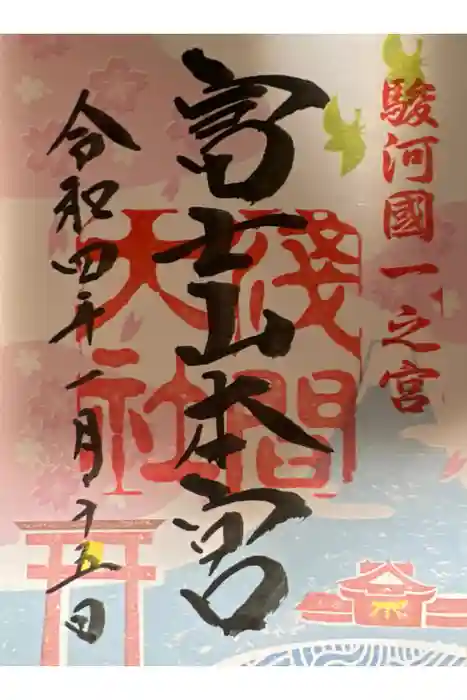 駿河國一之宮
富士山本宮
淺間
大社
令和四年一月十五日